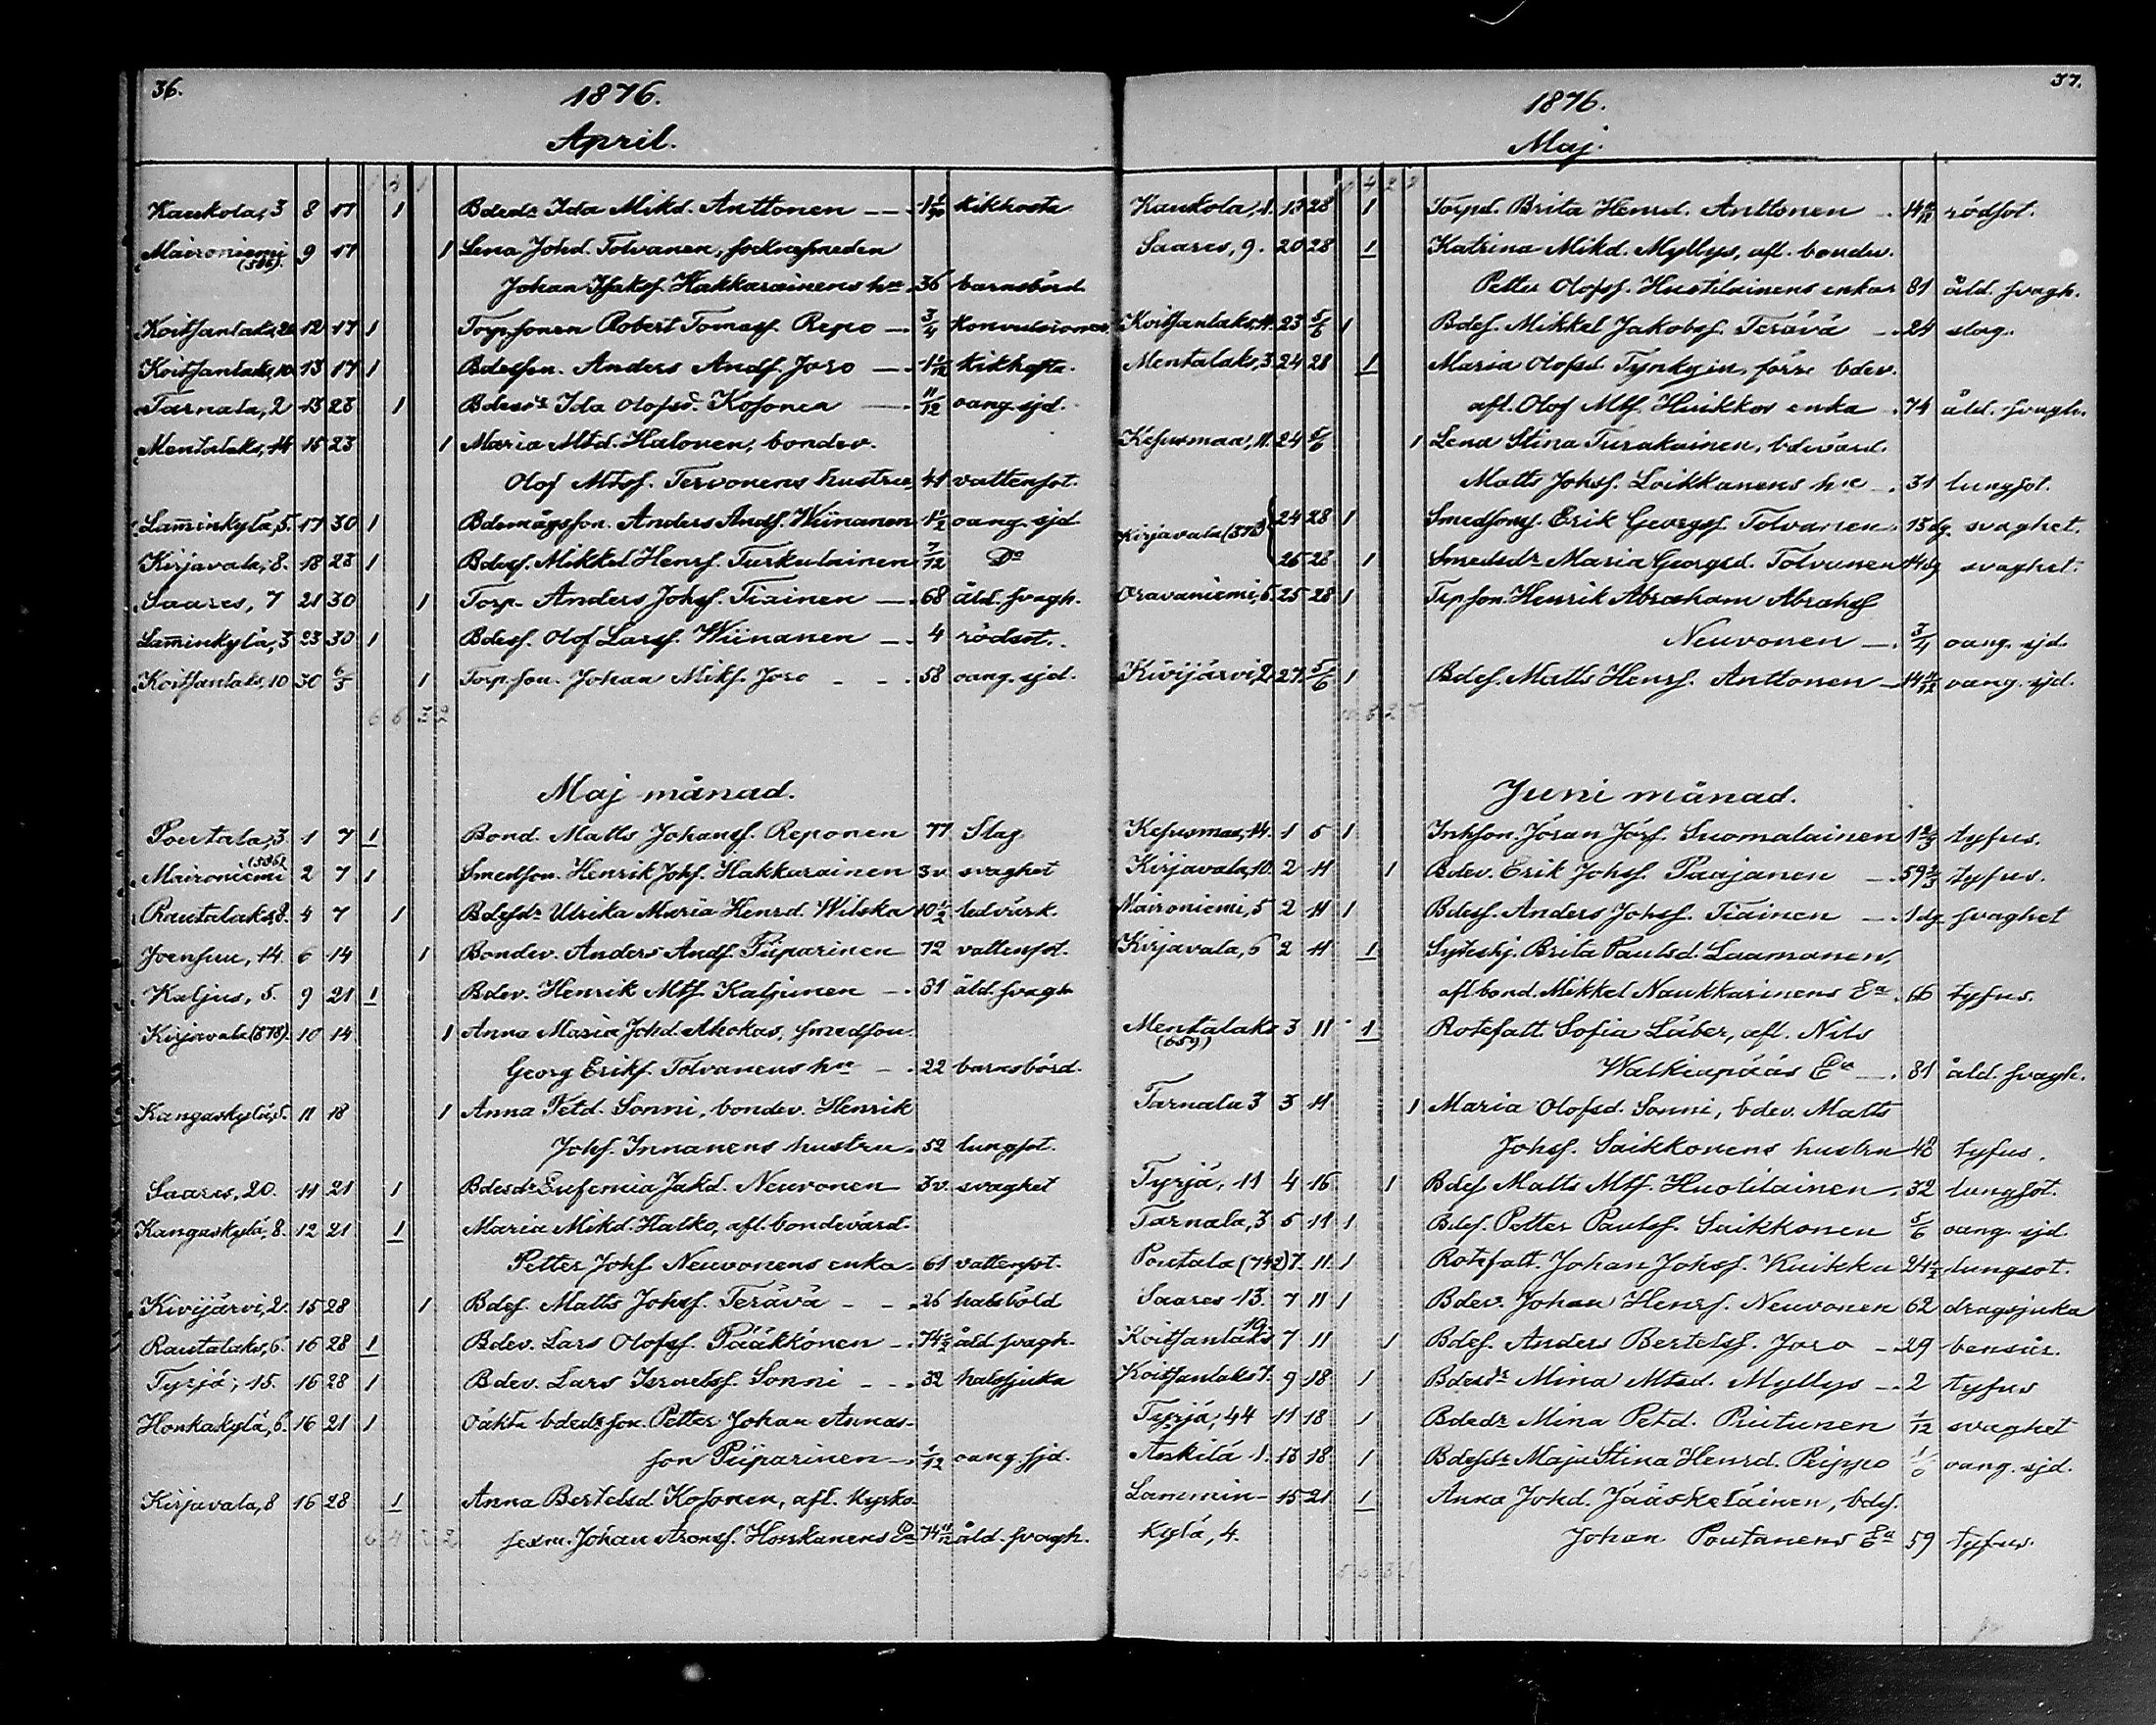 36.
1876.
April.
Kaukola, 3 8 17 1 Bdedr Ida Mikd. Anttonen kikhosta
Maironiemi (586). 9 17 1 Lena Johd. Tolvanen, socknesmeden
Johan Isaksf. Hakkarainens hu 36 barnsbörd.
Koitsanlaks, 20 12 17 1 Torp.sonen Robert Tomasf. Repo 3/4 konvulsioner
Koitsanlaks, 10 13 17 1 Bdesson. Anders Andf. Joro 1 1/2 kikhosta.
Tarnala, 2 13 23 1 Bdesdr Ida Olofsd. Kosonen 11/12 oang. sjd.
Mentalaks, 14 15 23 1 Maria Mtsd. Halonen, bondev.
Olof Mtsf. Tervonens hustru, 41 vattensot.
Lamminkylä, 5. 17 30 1 Bdemågsson. Anders Andf. Wiinanen 1 1/2 oang. sjd.
Kirjavala, 8. 18 23 1 Bdesf. Mikkel Henrf. Turkulainen 7/12 Do
Saares, 7 21 30 1 Torp. Anders Johsf. Tiainen 68 åld. svagh.
Lamminkylä, 3 23 30 1 Bdesf. Olof Larsf. Wiinanen 4 rödsot.
Koitsanlaks, 10 30 6/5 1 Torp.son. Johan Mikf. Joro 58 oang. sjd.
6 6 3 2
Maj månad.
Poutala, 3. 1 7 1 Bond. Matts Johansf. Reponen 77 Slag
Maironiemi (586) 2 7 1 Smedson. Henrik Johf. Hakkarainen 3 v. svaghet
Rautalaks, 8. 4 7 1 Bdesdr Ulrika Maria Henrd. Wilska 10 1/2 ledvärk.
Joensuu, 14. 6 14 1 Bondev. Anders Andf. Piiparinen 72 vattensot.
Kaljus, 5. 9 21 1 Bdev. Henrik Mtsf. Kaljunen 81 åld. svagh
Kirjavala (578). 10 14 1 Anna Maria Johd. Ahokas, smedson
Georg Erikf. Tolvanens hu 22 barnsbörd.
Kangaskylä, 5. 11 18 1 Anna Petd. Sonni, bondev. Henrik
Johf. Innanens hustru 52 lungsot.
Saares, 20. 11 21 1 Bdesdr Eufemia Jakd. Neuvonen 3 v. svaghet
Kangaskylä, 8. 12 21 1 Maria Mikd. Halko, afl. bondevärd.
Petter Johf. Neuvonens enka 61 vattensot.
Kivijärvi, 2. 15 28 1 Bdesf. Matts Johsf. Terävä 26 halsböld
Rautalaks, 6. 16 28 1 Bdev. Lars Olofsf. Pääkkönen 74 1/2 åld. svagh.
Tyrjä, 15. 16 28 1 Bdev. Lars Israelsf. Sonni 32 halssjuka
Honkakylä, 6. 16 21 1 Oäkta bdedr son. Petter Johan Annas-
son Piiparinen 1/12 oang. sjd.
Kirjavala, 8 16 28 1 Anna Bertelsd. Kosonen, afl. kyrko-
sexm. Johan Aronsf. Honkanens Ea 74 11/12 åld. svagh.
6 4 2 2
37.
1876.
Maj.
Kaukola, 1. 13 28 1 Torpd. Brita Henrd. Anttonen rödsot.
Saares, 9. 20 28 1 Katrina Mikd. Myllys, afl. bondev.
Petter Olofsf. Huotilainens enka 81 åld. svagh.
Koitsanlaks, 11. 23 5/6 1 Bdesf. Mikkel Jakobsf. Terävä 24 slag.
Mentalaks, 3. 24 28 1 Maria Olofsd. Tynkyin, förre bdev.
afl. Olof Mtsf. Huikkos enka 74 åld. svagh.
Kesusmaa, 11. 24 5/6 1 Lena Stina Turakainen, bdevärd.
Matts Johsf. Loikkanens hu 31 lungsot.
Kirjavala (578) 24 28 1 Smedsons. Erik Georgsf. Tolvanen 13 dg. svaghet.
26 28 1 Smedsdr Maria Georgsd. Tolvanen 14 dg svaghet.
Oravaniemi, 5. 25 28 1 Tpson. Henrik Abraham Abrahsf
Neuvonen 3/4 oang. sjd.
Kivijärvi, 2. 27. 5/6 1 Bdesf. Matts Henrsf. Anttonen 14 11/12 oang. sjd.
Juni månad.
Kesusmaa, 14. 1 5 1 Inhson. Jöran Jörf. Suomalainen 1 2/3 tyfus.
Kirjavala, 10. 2 11 1 Bdev. Erik Johsf. Paajanen 59 2/3 tyfus.
Maironiemi, 5 2 11 1 Bdesf. Anders Johsf. Tiainen 1 dg svaghet
Kirjavala, 5 2 11 1 Sytnhj. Brita Paulsd. Laamanen,
afl. bond. Mikkel Naukkarinens Ea 66 tyfus.
Mentalaks (659) 3 11 1 Rotefatt. Sofia Läber, afl. Nils
Walkiapääs Ea 81 åld. svagh.
Tarnala 3 3 11 1 Maria Olofsd. Sonni, bdev. Matts
Johsf. Saikkonens hustru 48 tyfus.
Tyrjä, 11 4 16 1 Bdesf Matts Mtsf. Huotilainen 32 lungsot.
Tarnala, 3 5 11 1 Bdesf. Petter Paulsf. Saikkonen 5/6 oang. sjd.
Poutala (742) 7. 11. 1 Rotefatt. Johan Johsf. Kuikka 24 1/2 lungsot.
Saares 13. 7 11 1 Bdev. Johan Henrsf. Neuvonen 62 dragsjuka
Koitsanlaks 19. 7 11 1 Bdesf. Anders Bertelsf. Joro 29 bensår.
Koitsanlaks 7. 9 18 1 Bdesdr Mina Mtsd. Myllys 2 tyfus
Tyrjä, 44 11 18 1 Bdedr Mina Petd. Putunen 1/12 svaghet
Ankilä 1. 13 18 1 Bdesdr Maja Stina Henrd. Peippo 1/6 oang. sjd.
Lammin- 15 21 1 Anna Johd. Jääskeläinen, bdsf.
kylä, 4. Johan Poutanens Ea 59 tyfus.